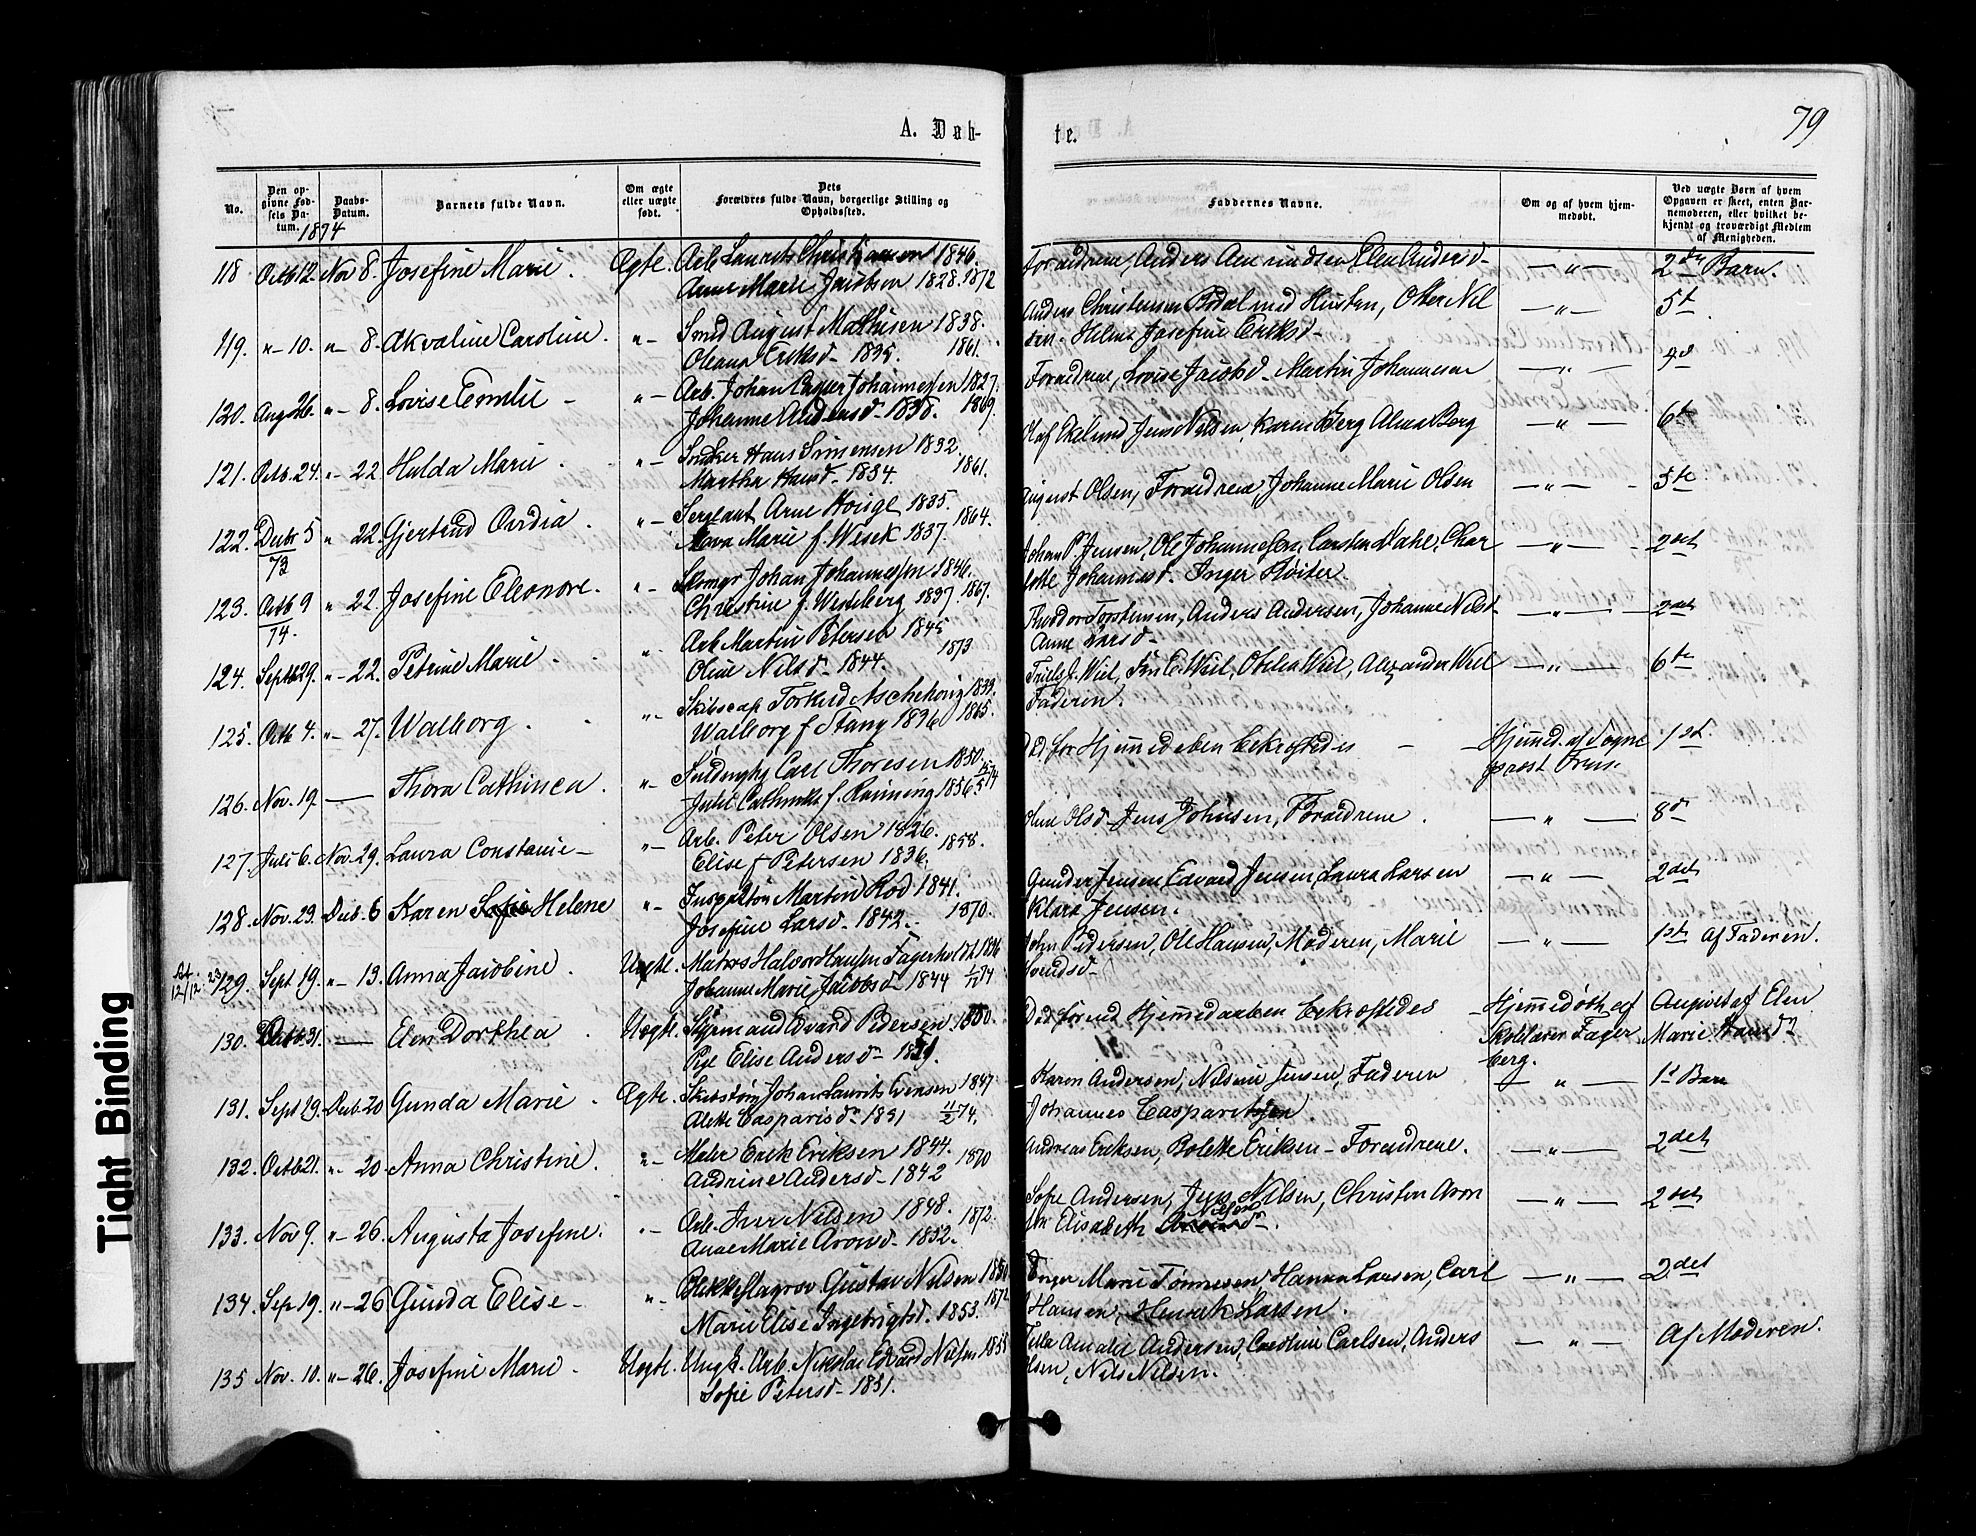 79
A. Døb-
te.
No.
Den op-
givne Fød-
sels Da-
tum.
Daabs-
Datum.
Barnets fulde Navn.
Om ægte
eller uægte
født.
Dets
Forældres fulde Navn, borgerlige Stilling og
Opholdssted.
Faddernes Navne.
Om og af hvem hjem-
medøbt.
Ved uægte Børn af hvem
Opgaven er skeet, enten Bar-
nemoderen, eller hvilket be-
kjendt og troværdigt Medlem
af Menigheden.
1874
118 Octb 12. Nov 8. Josefine Marie. Ægte. Arb. Laurits Christiansen 1846.
Anne Marie Jacobsen 1828. 1872
Forældrene, Anders Elen Andersd-
—„— 2det Barn.
119. „- 10. „- 8. Akvaline Caroline. „- Smed August Mathisen 1838.
Oleana Eriksd- 1835. 1861.
Anders Christensen med Hustru, Nil
sen. Helene Josefine Eriksd-
—„— 5t
120. Aug 26. „- 8. Lovise Emilie - „- Arb. Johan Johannesen 1827.
Johanne Andersd- 1838. 1869.
Forældrene, Lovise Jacobd- Martin Johannesen
—„—
121. Octb. 24. „- 22. Hulda Marie. „- Snedker Hans Simensen 1832.
Martha Hansd- 1834. 1861.
Olaf Ekelund Jens Nilsen, Karen Berg Alma Berg
—„— 6te
122. Decbr 5/73 „ 22. Gjertrud Ovidia. „- Sergeant Arne 1835.
Marie f. Wesek 1837. 1864.
August Olsen, Forældrene, Johanne Marie Olsen
—„— 5te
123. Octb 9/74. „ 22. Josefine Eleonore. „- Johan Johannesen 1846.
Christine f. Westeberg 1837. 1867.
Johan P. Jensen, Ole Johannesen, Carsten Dahl, Char
lotte Johannesd- Inger
—„— 2det
124. Septb 29. „- 22. Petrine Marie. „- Arb. Martin Petersen 1845
Oline Nilsd- 1844. 1873
Theodor Torstensen, Anders Andersen, Johanne Nilsd
Anne Larsd-
—„— 2det
125. Octb 4. „- 27. Walborg. „- Skibscap Torkild Aschehoug 1839.
Walborg f Stang 1836 1865.
Wiel, Wiel, Wiel, Alexander Wiel
Faderen.
—„— 6te
126. Nov. 19. — Thora Cathinca. „- Carl Thoresen 1850.
Julie f. Rønning 1856
Død før Hjemmedaaben bekræftedes
Hjemmed. af Sogne
præst
1st
127. Juli 6. Nov. 29. Laura Constanse- „- Arb. Peter Olsen 1826.
Elise f Petersen 1836. 1858.
Oline Olsd Jens Johnsen, Forældrene.
—„— 8d
128. Nov. 23. Decb. 6 Karen Sofie Helene „- Martin Rød 1841.
Josefine Larsd- 1842. 1870.
Gunder Jensen, Edvard Jensen, Laura Larsen
Klara Jensen.
—„— 2det
129. Sept 19. „- 13. Anna Jacobine. Uægte. Matros Halvor Hansen Fagerholdt 1846
Johanne Marie Jacobsd- 1844
John Pedersen, Ole Hansen, Moderen, Marie
—„— 1ste Af Faderen.
130. Octb 31. — Elen Dorthea Uægte. Styrmand Edvard Pedersen
Pge Elise Andersd-
Død førend Hjemmedaaben bekræftedes
Hjemmedøbt af
Skolelærer Fager
berg.
Angivet af Elen
Marie Hansd
131. Sept 29. Decb. 20 Gunda Marie. Ægte. Johan Laurits Evensen 1847
Alette Casparisd- 1851 11/2 74.
Karen Andersen, Nilsine Jensen, Faderen
Johannes Casparitsen.
—„— 1st Barn
132. Octb 21. „- 20 Anna Christine. „- Maler Erik Eriksen 1844.
Andrine Andersd- 1842 1870
Andreas Eriksen, Bolette Eriksen - Forældrene.
—„— 2det
133. Nov 9. „- 26. Augusta Josefine. „- Arb. Iver Nilsen 1848.
Anne Marie Aronsd- 1852. 1872.
Sofie Andersen, Jens Nilsen, Christen Aron
sen Elisabeth Nilsen
—„— 2det
134. Sep 19. „- 26 Gunda Elise- „- Gustav Nilsen
Marie Elise Ingebrigtsd. 1853.
Inger Marie Tønnesen, Hanna Larsen, Carl
Hansen, Henrik Larsen.
—„— 2det
135 Nov. 10. „- 26. Josefine Marie. Uægte. Ungk. Arb. Nikolai Edvard Nilsen
Sofie Petersd- 1851.
Amalie Andersen, Caroline Carlsen, Anders
Olsen, Nils Nilsen.
—„— Af Moderen.
Tight Binding